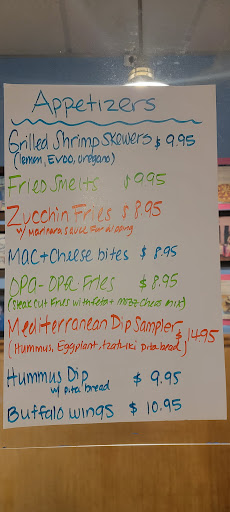 Appetizers
Grilled Shrimp Skewers $ 9.95
(lemon, EVOO, oregano)
Fried Smelts $9.95
Zucchin Fries $ 8.95
w/ marinara sauce for dipping
MAC + Cheese bites $ 8.95
OPA-OPA Fries $ 8.95
(steak cut fries with feta + mozz chees mix)
Mediterranean Dip Sampler
$14.95
(Hummus, Eggplant, tzatziki pita bread)
Hummus Dip $ 9.95
w/ pita bread
Buffalo wings $ 10.95